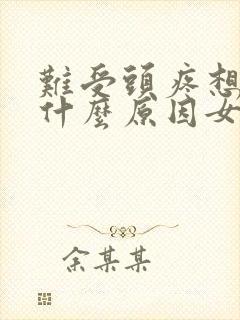 難受頭疼想
什麼原因女
余某某